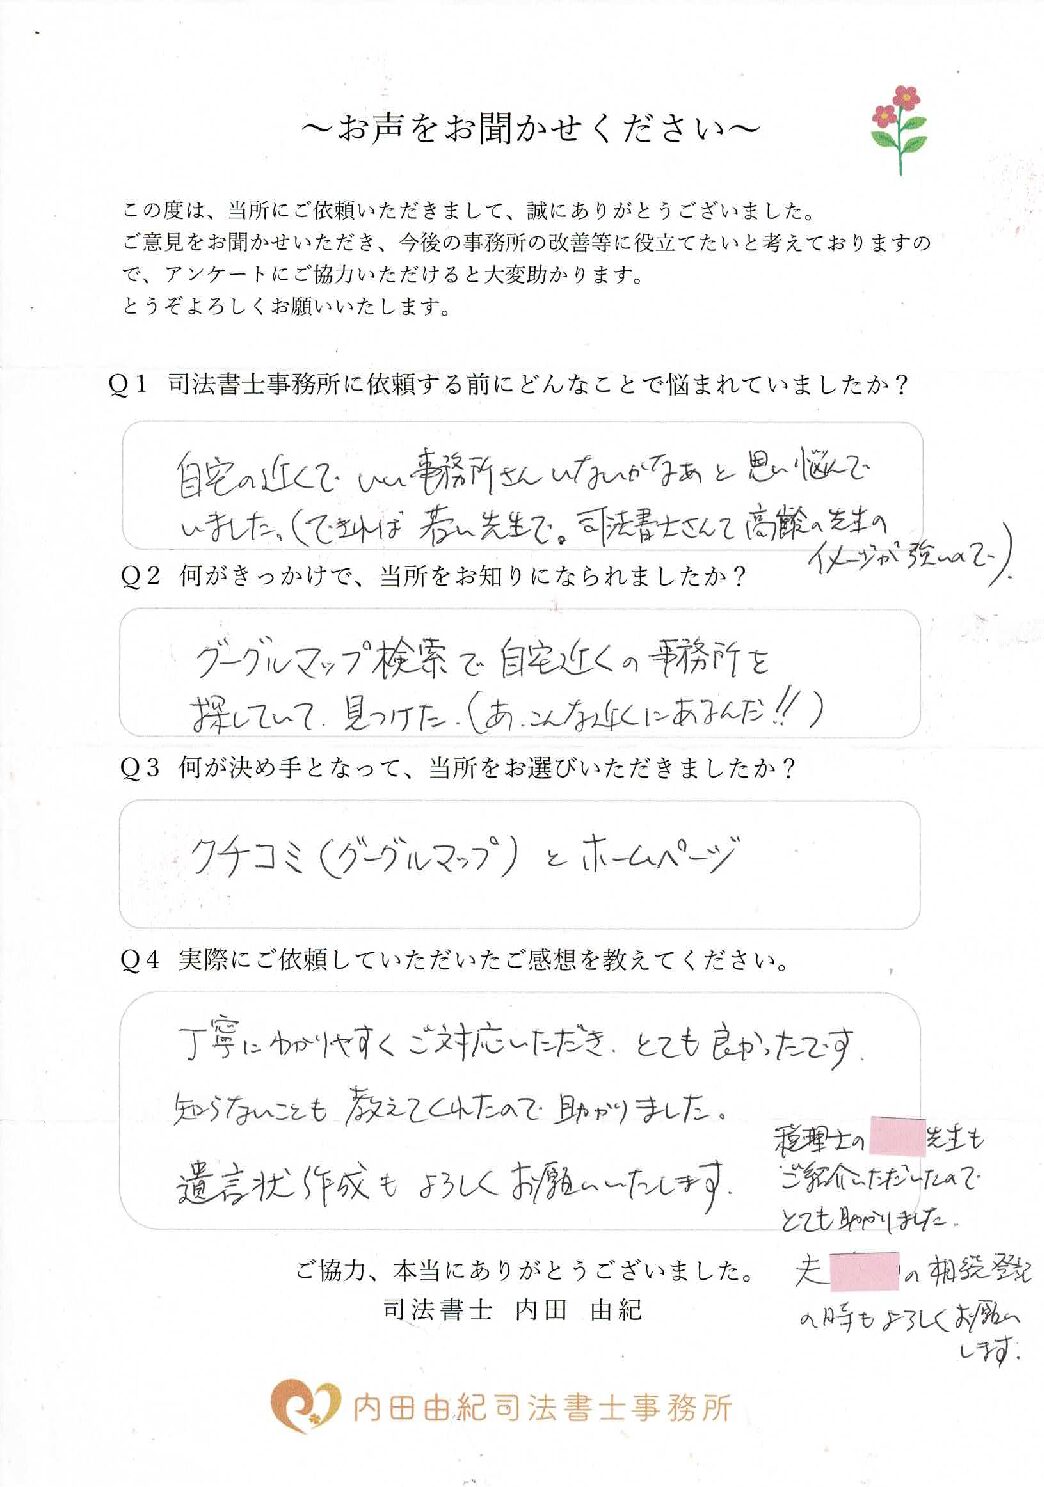 ～お声をお聞かせください～
この度は、当所にご依頼いただきまして、誠にありがとうございました。
ご意見をお聞かせいただき、今後の事務所の改善等に役立てたいと考えておりますの
で、アンケートにご協力いただけると大変助かります。
どうぞよろしくお願いいたします。
Q1 司法書士事務所に依頼する前にどんなことで悩まれていましたか？
自宅の近くで いい事務所さんいないかなぁと思い悩んで
いました。(できれば 若い先生で。司法書士さんて高齢の先生の
イメージが強いので).
Q2 何がきっかけで、当所をお知りになられましたか？
グーグルマップ検索で自宅近くの事務所を
探していて、見つけた。(あ、こんな近くにあるんだ!!)
Q3 何が決め手となって、当所をお選びいただきましたか？
クチコミ(グーグルマップ)とホームページ
Q4 実際にご依頼していただいたご感想を教えてください。
丁寧にわかりやすくご対応いただき、とても良かったです。
知らないことも教えてくれたので助かりました。
遺言状作成もよろしくお願いいたします。
税理士の 先生も
ご紹介いただいたので
とても助かりました。
夫 の相続登記
の時もよろしくお願い
します。
ご協力、本当にありがとうございました。
司法書士 内田 由紀
内田由紀司法書士事務所